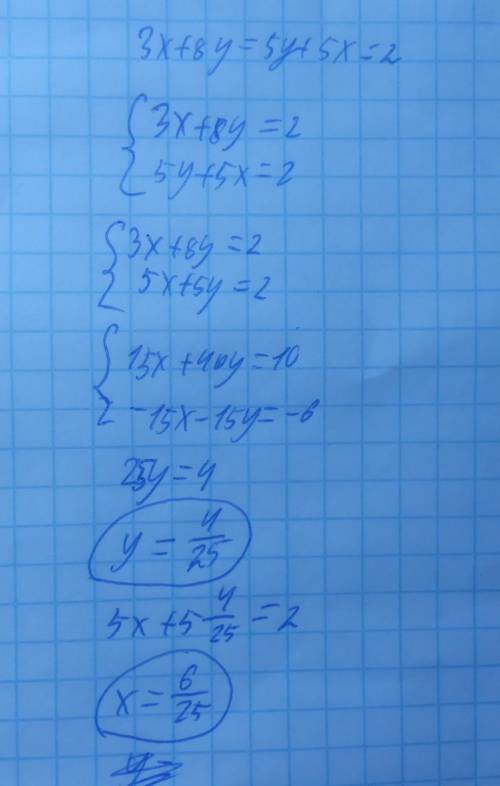 3x+8y=5y+5x=2
{3x+8y=2
5y+5x=2
{3x+8y=2
5x+5y=2
{15x+40y=10
-15x-15y=-6
25y=4
y=4/25
5x+5 4/25=2
x=6/25